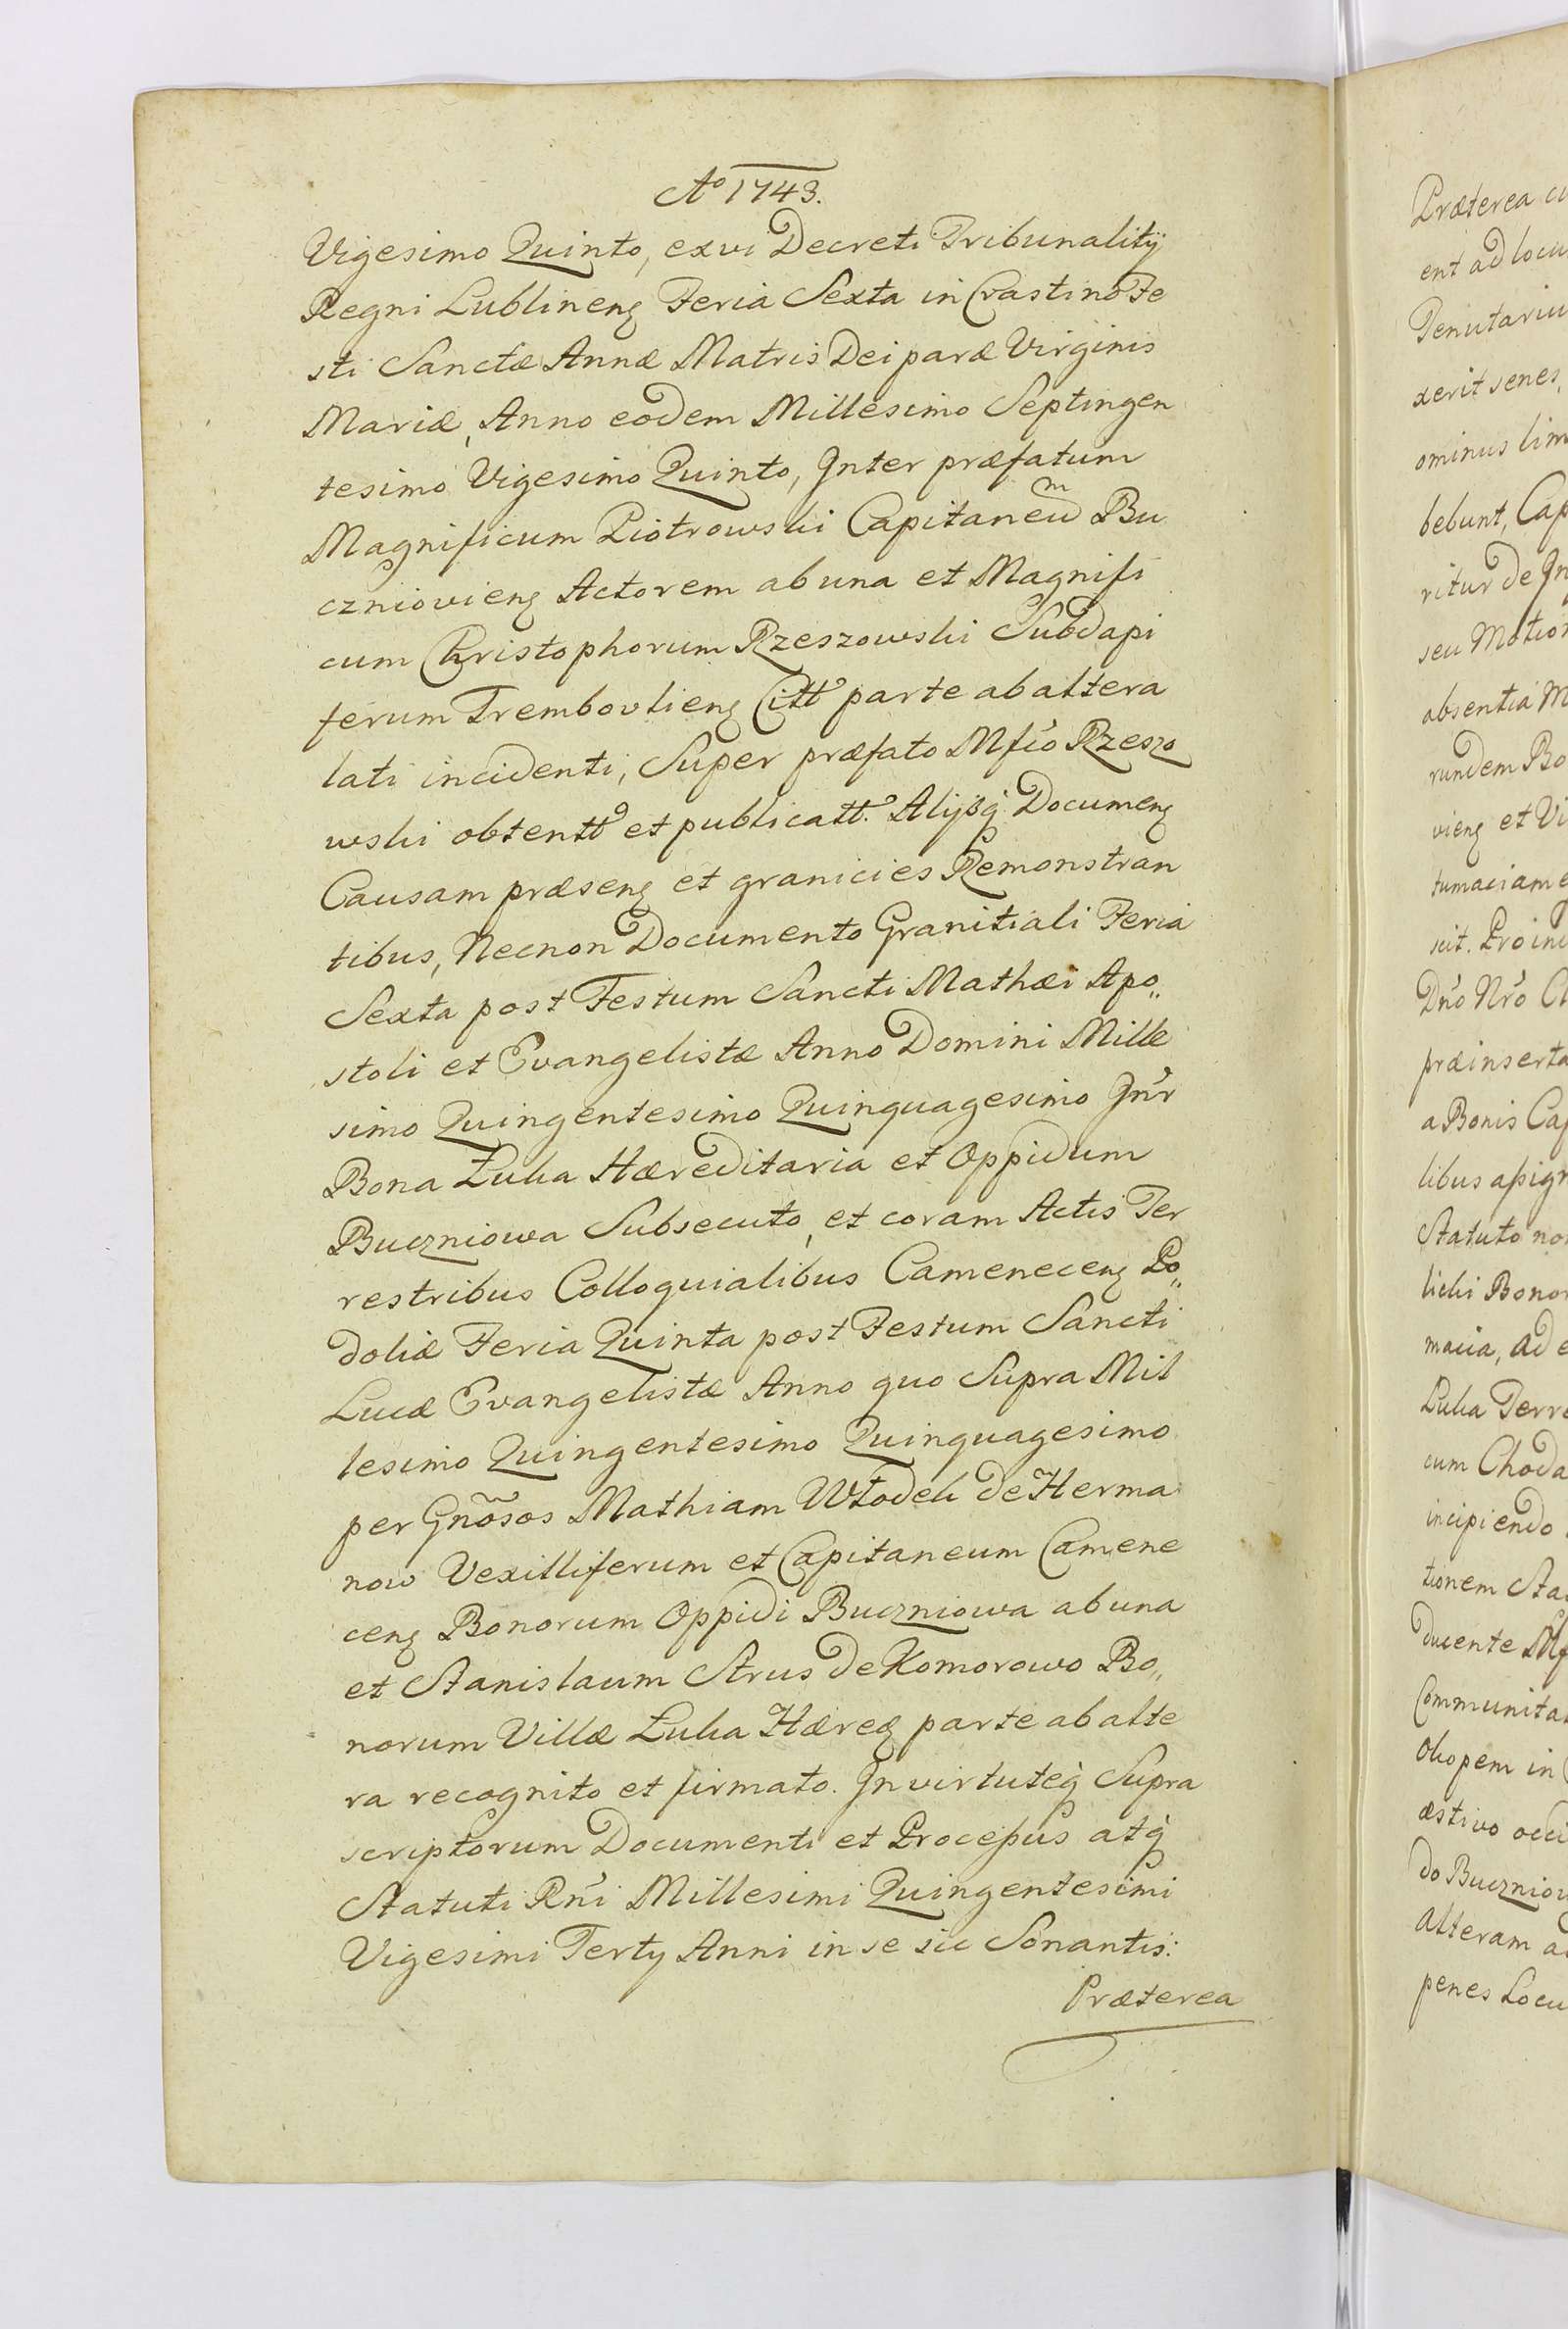 Aº 1743.
Vigesimo Quinto, ex vi Decreti Tribunalitÿ
Regni Lublineng Feria Sexta in Crastino Fe
sti Sanctæ Annæ Matris Dei paræ Virginis
Mariæ, Anno eodem Millesimo Septingen
tesimo Vigesimo Quinto, Inter præfatum
Magnificum Piotrowski Capitaneum Bu
czniovieng Actorem ab una et Magnifi
cum Christophorum Rzeszowski Subdapi
ferum Trembovlieng Citt parte ab altera
lati incidenti, Super præfato Mfćo Rzeszo
wski obtentt et publicatt. Alijsq́ Documeng
Causam præseng et granicies Remonstran
tibus, Necnon Documento Granitiali Feria
Sexta post Festum Sancti Mathæi Apo„
stoli et Evangelistæ Anno Domini Mille
simo Quingentesimo Quinquagesimo Inr̃
Bona Łuka Hæreditaria et Oppidum
Buczniowa Subsecuto, et coram Actis Ter
restribus Colloquialibus Cameneceng Po„
doliæ Feria Quinta post Festum Sancti
Lucæ Evangelistæ Anno quo Supra Mil
lesimo Quingentesimo Quinquagesimo
per Gnõsos Mathiam Włodek de Herma
now Vexilliferum et Capitaneum Camene
ceng Bonorum Oppidi Buczniowa ab una
et Stanislaum Strus de Komorowo Bo„
norum Villæ Łuka Hæreg parte ab alte
ra recognito et firmato. In virtuteq́ Supra
scriptorum Documenti et Proceßus atq́
Statuti Rńi Millesimi Quingentesimi
Vigesimi Terty Anni in se sic Sonantis:
Præterea
Præterea
ent ad locu
Tenutariu
xerit senes,
ominus lim
bebunt, Cap
ritur de In
seu Motion
absentia M
rundem Bo
vieng et Vi
tumaciam e
scit. Proin
Dńo Nr̃o
præinserta
a Bonis Cap
libus aßign
Statuto non
licki Bonor
macia, ad e
Łuka Terre
cum Choda
incipiendo
tionem Sta
ducente Mf
Communitat
Okopem in
æstivo occi
do Buczniow
alteram
penes Locu